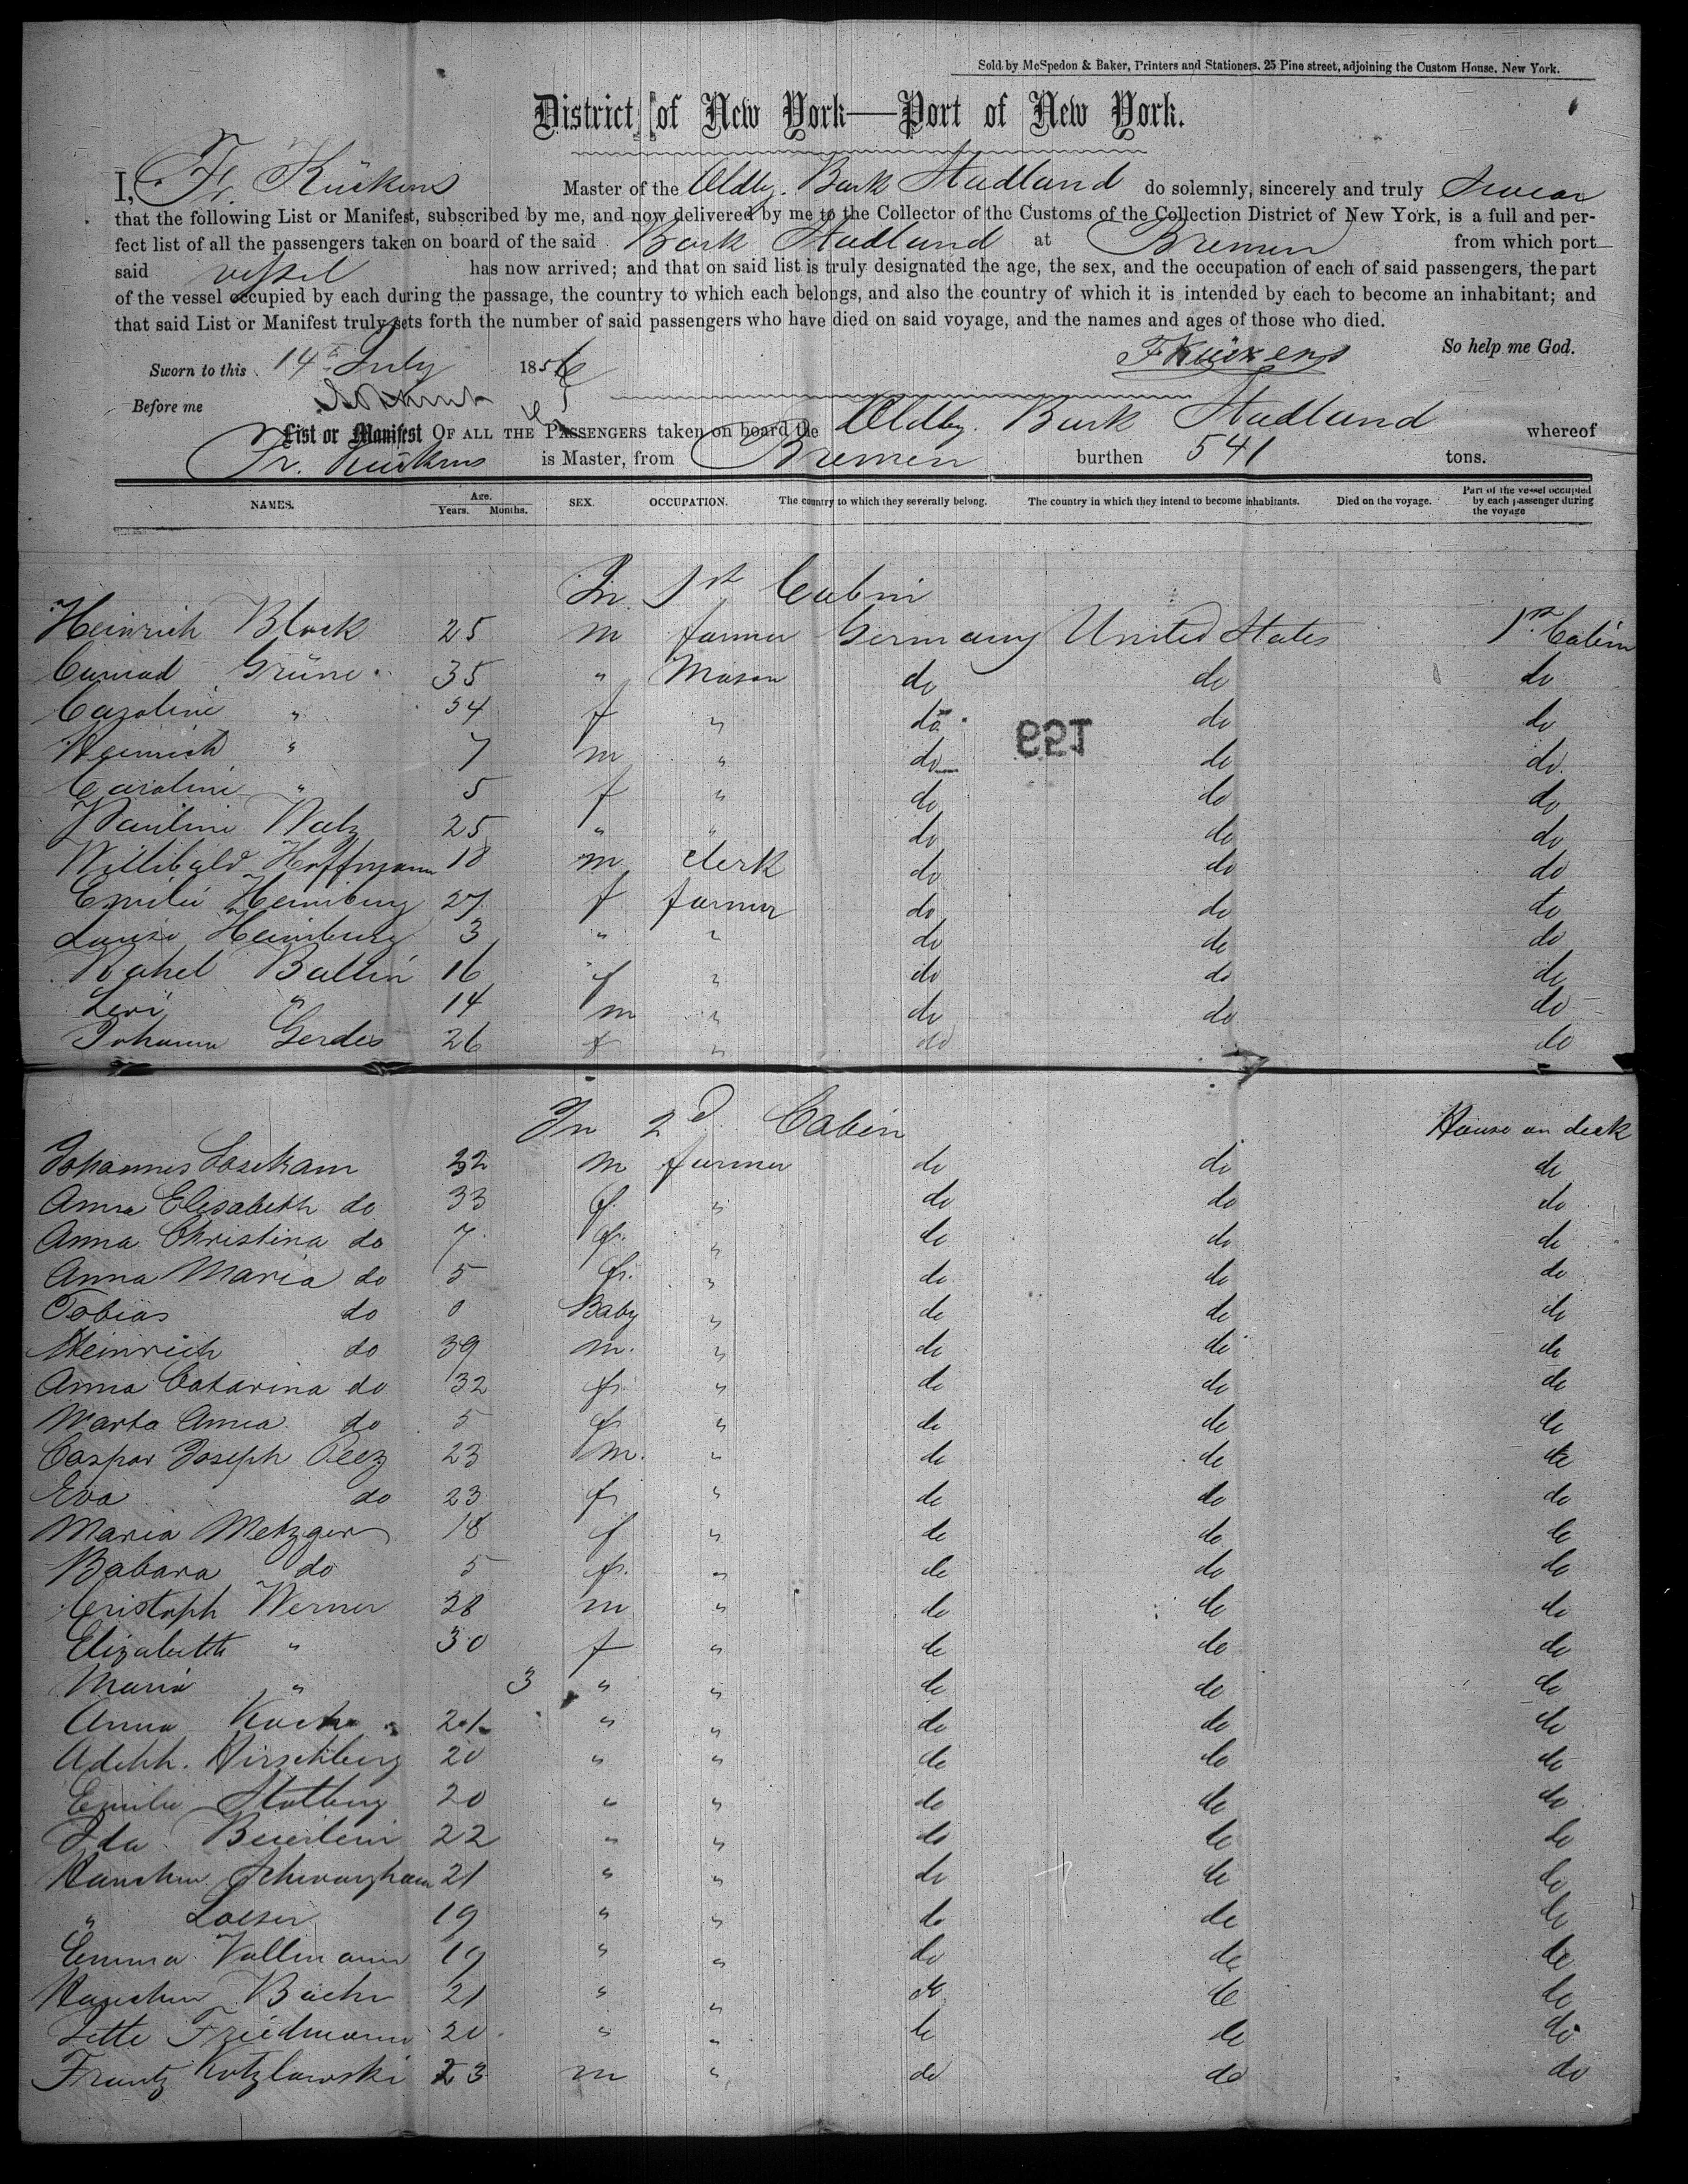 Sold by McSpedon & Baker, Printers and Stationers, 25 Pine street, adjoining the Custom House, New York.
District of New York—Port of New York.
I, Fr. Kückens Master of the Oldbg. Bark Stadland do solemnly, sincerely and truly swear
that the following List or Manifest, subscribed by me, and now delivered by me to the Collector of the Customs of the Collection District of New York, is a full and per-
fect list of all the passengers taken on board of the said Bark Stadland at Bremen from which port
said vessel has now arrived; and that on said list is truly designated the age, the sex, and the occupation of each of said passengers, the part
of the vessel occupied by each during the passage, the country to which each belongs, and also the country of which it is intended by each to become an inhabitant; and
that said List or Manifest truly sets forth the number of said passengers who have died on said voyage, and the names and ages of those who died.
So help me God.
Sworn to this 14th July 1856 F Kückens
Before me
List or Manifest OF ALL THE PASSENGERS taken on board the Oldbg. Bark Stadland whereof
Fr. Kückens is Master, from Bremen burthen 541 tons.
NAMES. Age. Years. Months. SEX. OCCUPATION. The country to which they severally belong. The country in which they intend to become inhabitants. Died on the voyage. Part of the vessel occupied by each passenger during the voyage
In 1st Cabin
Heinrich Block 25 m farmer Germany United States 1st Cabin
Conrad Grüne 35 " Mason do do do
Caroline " 34 f " do do do
199
Heinrich " 7 m " do do do
Caroline " 5 f " do do do
Pauline Walz 25 " " do do do
Willibald Hoffmann 18 m clerk do do do
Emilie Heimburg 27 f farmer do do do
Louise Heimburg 3 " " do do do
Rahel Ballin 16 f " do do do
Levi " 14 m " do do do
Johanna Gerdes 26 f " do do
In 2d Cabin House on deck
Johannes Losekam 32 m farmer do do do
Anna Elisabeth do 33 f. " do do do
Anna Christina do 7 f. " do do do
Anna Maria do 5 f. " do do do
Tobias do 0 Baby " do do do
Heinrich do 39 m. " do do do
Anna Catarina do 32 f. " do do do
Marta Anna do 5 f " do do do
Caspar Joseph Reez 23 m. " do do do
Eva do 23 f " do do do
Maria Metzger 18 f " do do do
Babara do 5 f. " do do do
Cristoph Werner 38 m " do do do
Elizabeth " 30 f " do do do
Maria " 3 " " do do do
Anna Koch 21 " " do do do
Adelh. Hirschberg 20 " " do do do
Emilie Stolberg 20 " " do do do
Ida Beuerlein 22 " " do do do
Hanchen 21 " " do do do
" Loeser 19 " " do do do
Emma Vollmann 19 " " do do do
Hanchen Bachr 21 " " do do do
Jette Friedmann 20 " " do do do
Frantz Kotzlowski 23 m " do do do